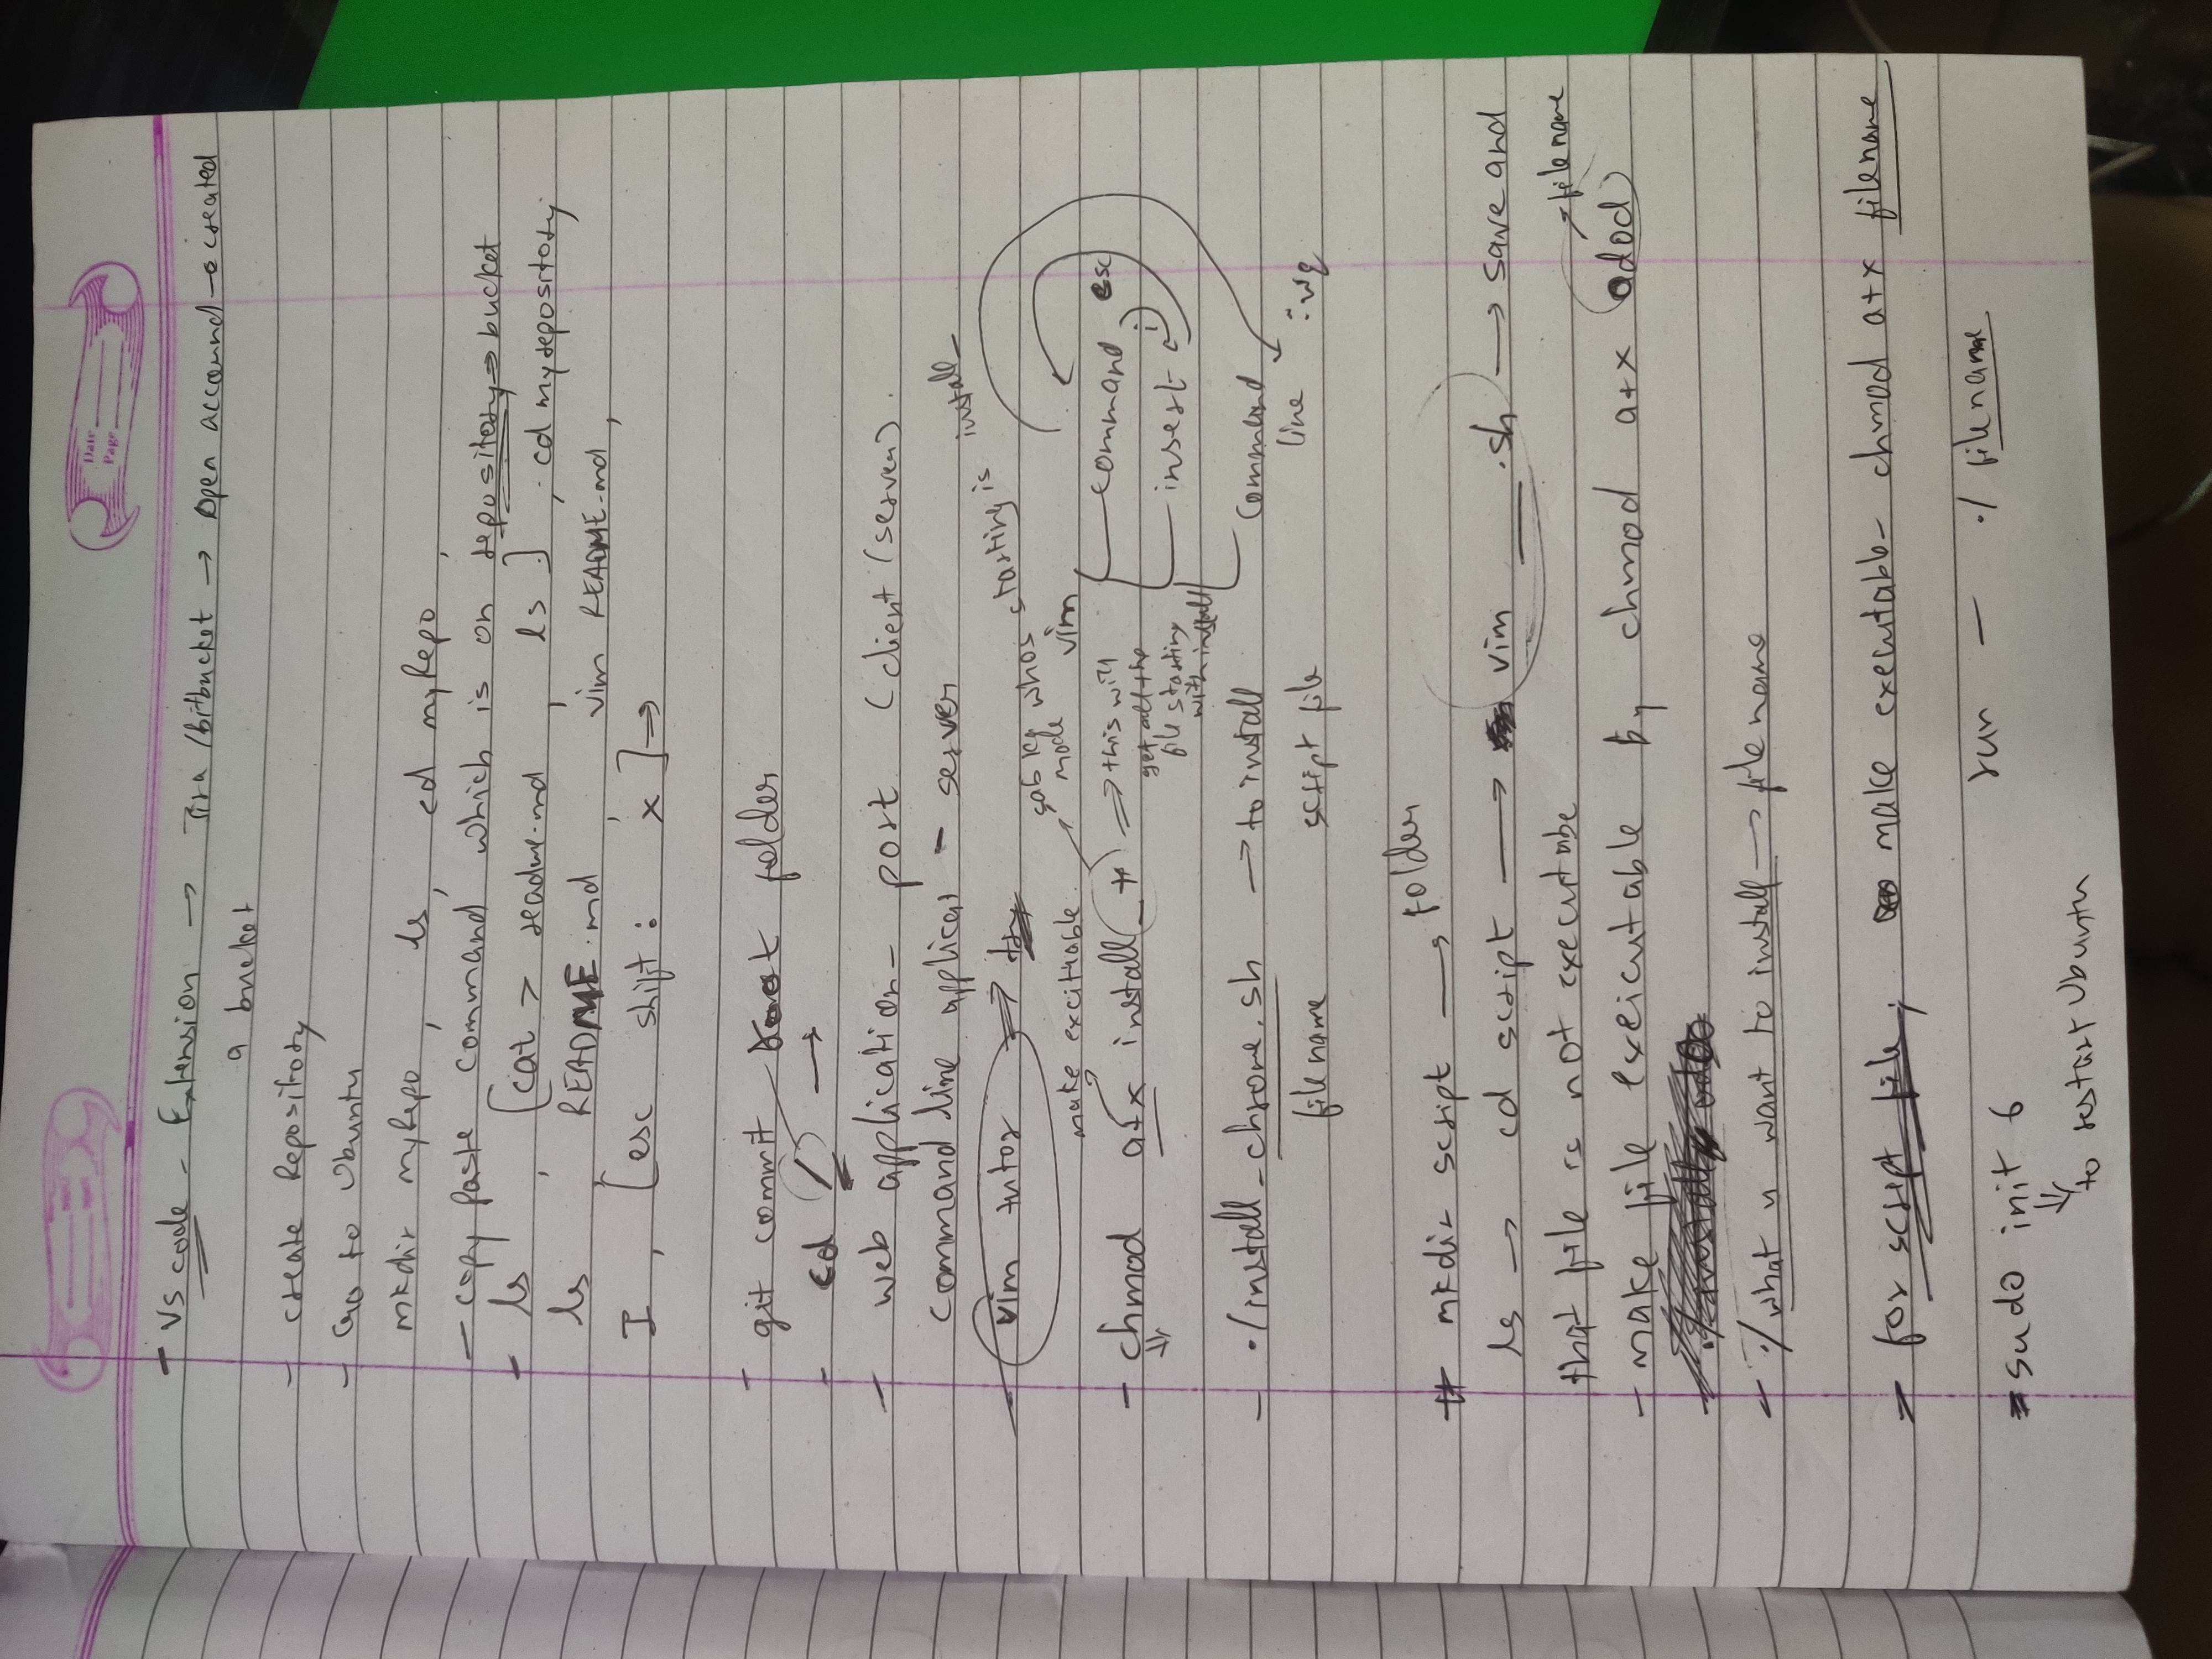 Date
Page
- VS code - Extension → Jira /bitbucket → Open accound → created
a bucket
- create Repository
- Go to Ubuntu
mkdir myRepo , ls, cd myRepo ,
- copy paste command which is on repository → bucket
- ls , [cat > readme.md , ls ] , cd myrepository
ls , README.md , vim README.md,
I , [esc shift : x ] →
- git commit root folder
- cd / →
- web application - port (client (server).
command line applicat - server
- vim tutor ⇒
sab ke mode whos starting is install_
make excitiable.
- chmod a+x install_* ⇒ this will
get all the
file starting
with install
vim
command esc
insert i
command
line :wq
- ./install_chrome.sh → to install
file name script file
# mkdir script → folder
ls → cd script → vim ___.sh → save and
that file is not executabe
→ file name
- make file exeicutable by chmod a+x odod
- ./what u want to install → file name
- for script file; make executable - chmod a+x filename
run - ./ filename
- sudo init 6
⇓
to restart Ubuntu